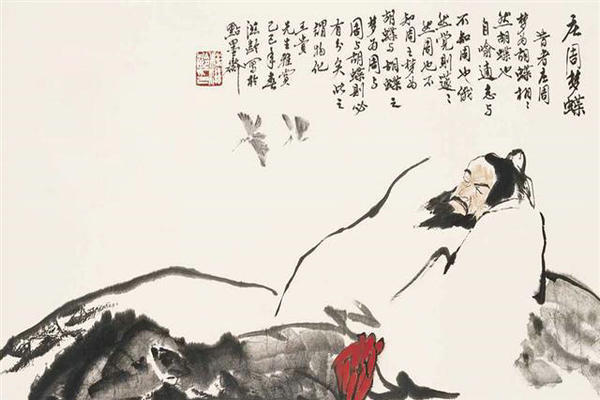 庄周梦蝶
昔者庄周
梦为胡蝶栩〻
然胡蝶也
自喻適志与
不知周也俄
然觉则蘧〻
然周也不
知周之梦为
胡蝶与胡蝶之
梦为周与
周与胡蝶则必
有分矣此之
谓物化
王贵
先生雅赏
己巳年春
写于
點墨斋